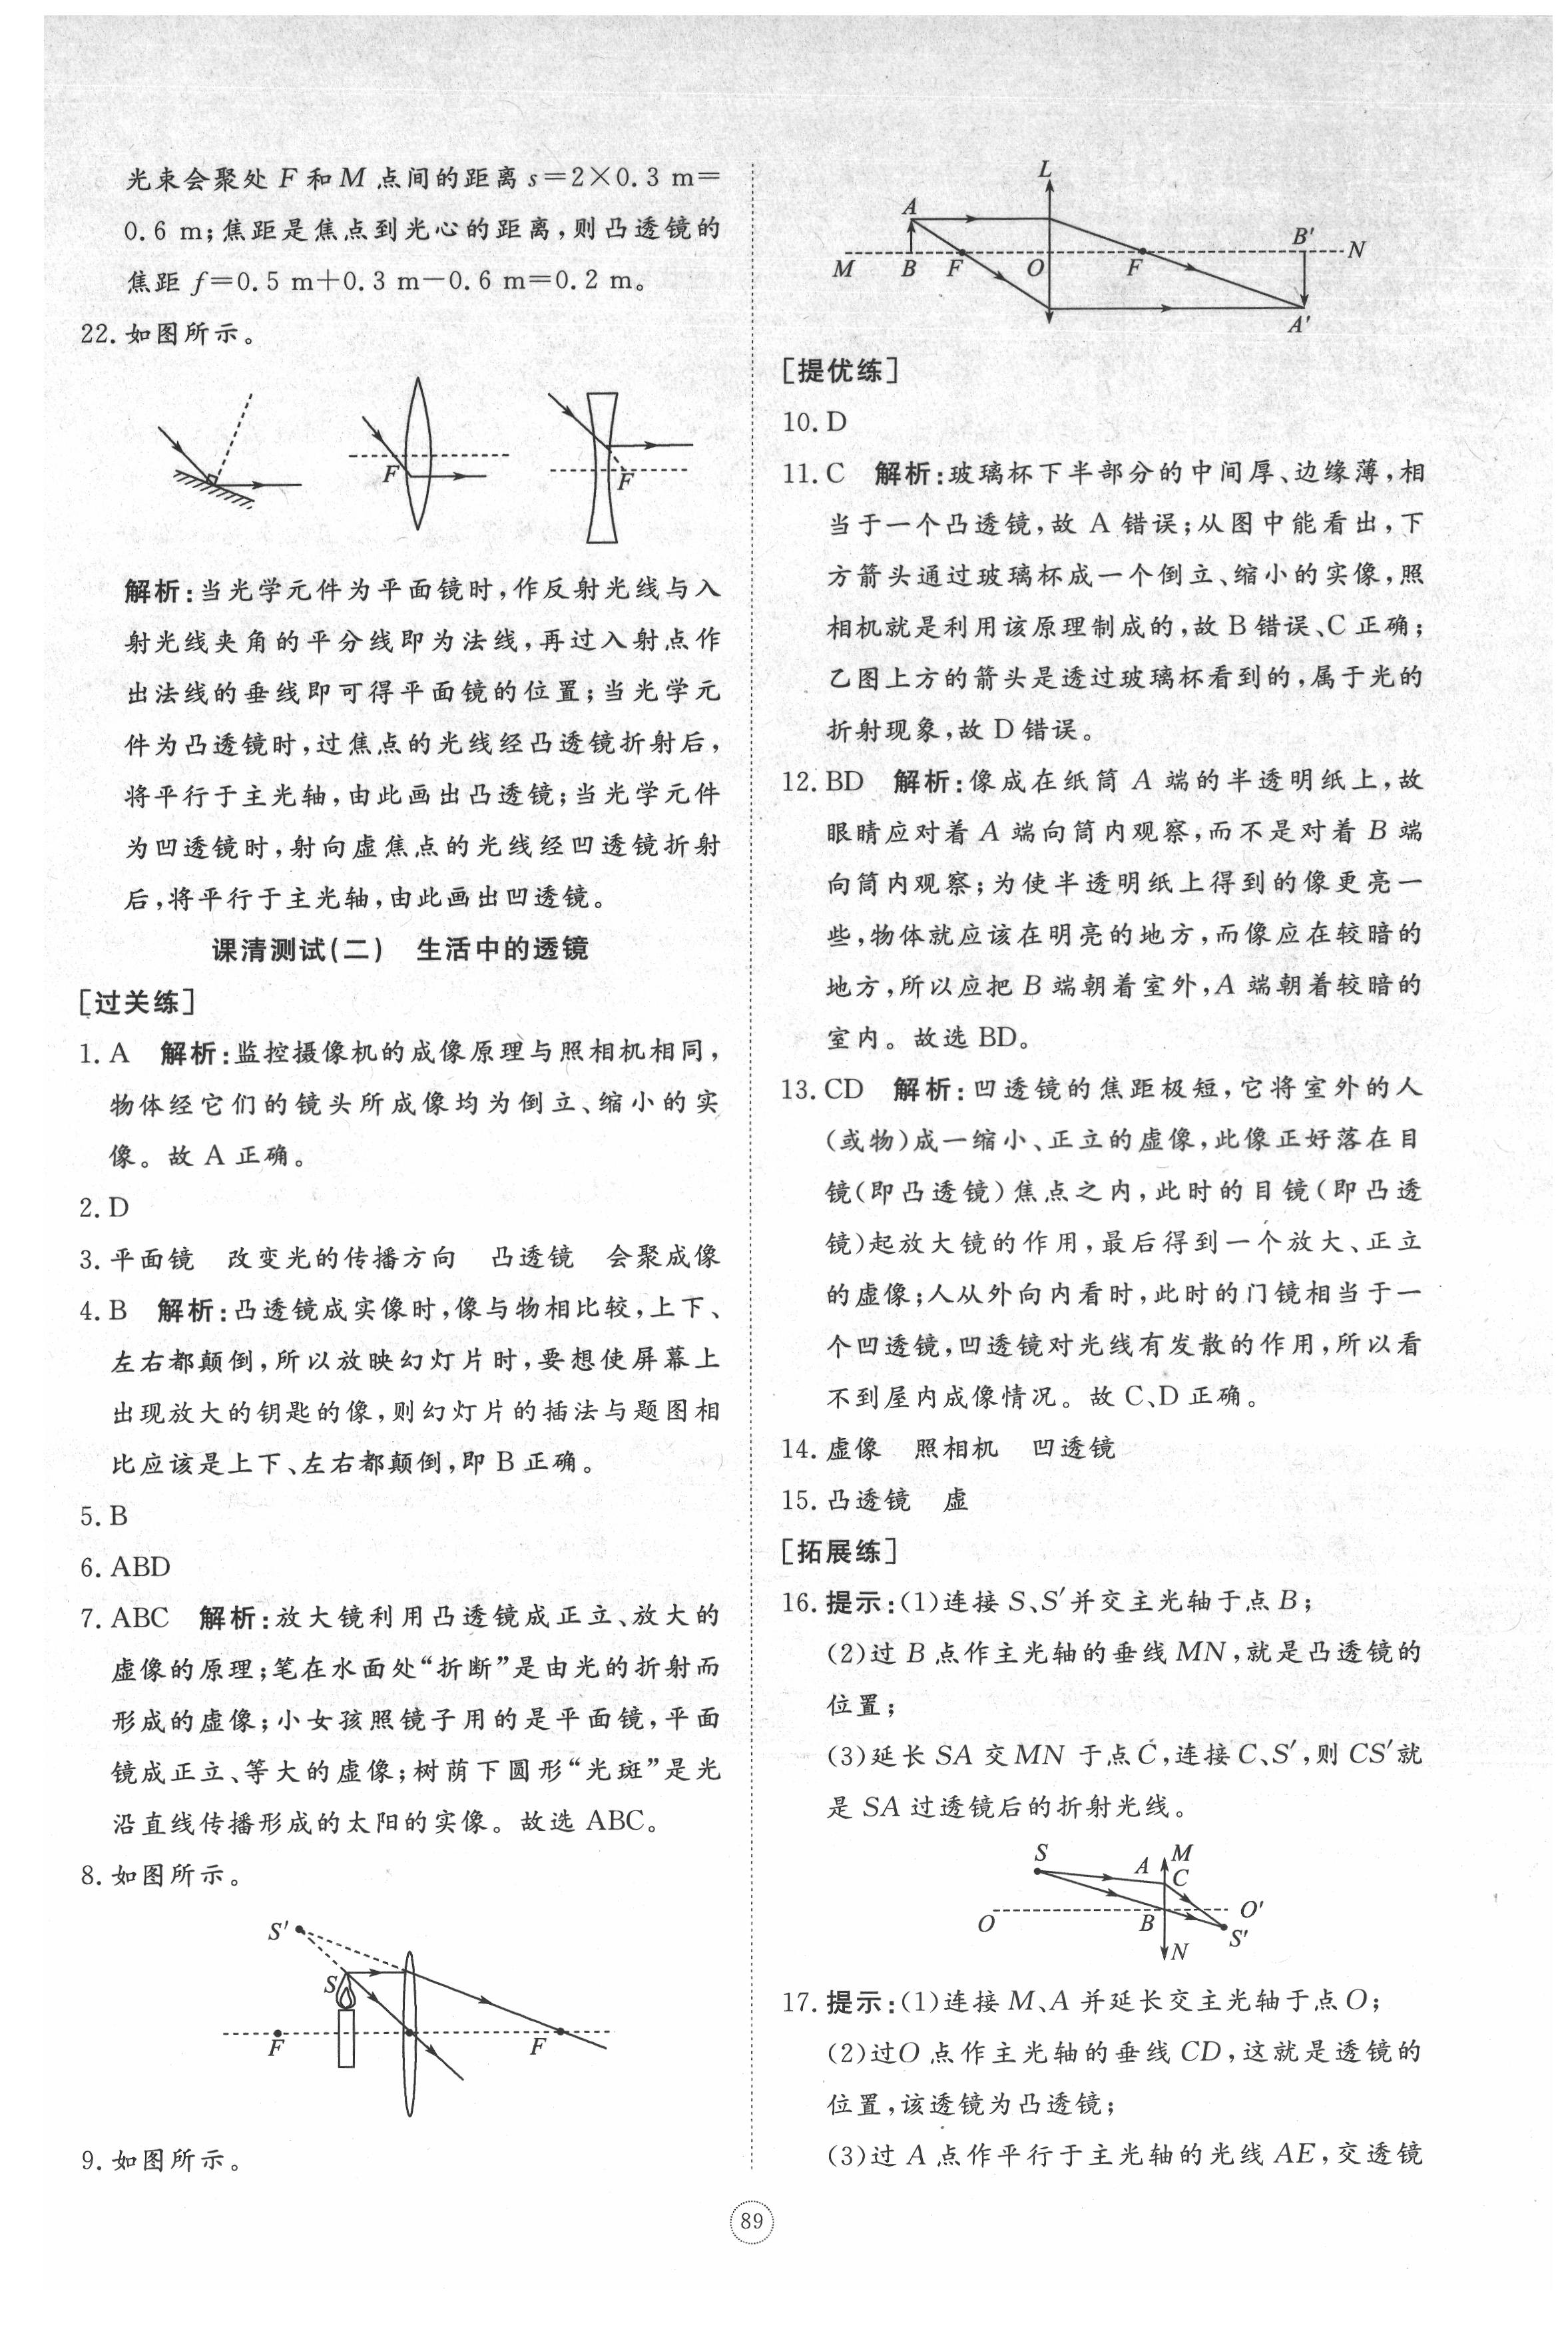 光束会聚处 F 和 M 点间的距离 s=2×0.3 m=
0.6 m;焦距是焦点到光心的距离,则凸透镜的
焦距 f=0.5 m+0.3 m-0.6 m=0.2 m。
22.如图所示。
F
F
解析:当光学元件为平面镜时,作反射光线与入
射光线夹角的平分线即为法线,再过入射点作
出法线的垂线即可得平面镜的位置;当光学元
件为凸透镜时,过焦点的光线经凸透镜折射后,
将平行于主光轴,由此画出凸透镜;当光学元件
为凹透镜时,射向虚焦点的光线经凹透镜折射
后,将平行于主光轴,由此画出凹透镜。
课清测试(二) 生活中的透镜
[过关练]
1. A 解析:监控摄像机的成像原理与照相机相同,
物体经它们的镜头所成像均为倒立、缩小的实
像。故 A 正确。
2. D
3. 平面镜 改变光的传播方向 凸透镜 会聚成像
4. B 解析:凸透镜成实像时,像与物相比较,上下、
左右都颠倒,所以放映幻灯片时,要想使屏幕上
出现放大的钥匙的像,则幻灯片的插法与题图相
比应该是上下、左右都颠倒,即 B 正确。
5. B
6. ABD
7. ABC 解析:放大镜利用凸透镜成正立、放大的
虚像的原理;笔在水面处“折断”是由光的折射而
形成的虚像;小女孩照镜子用的是平面镜,平面
镜成正立、等大的虚像;树荫下圆形“光斑”是光
沿直线传播形成的太阳的实像。故选 ABC。
8. 如图所示。
S'
S
F
F
9. 如图所示。
L
A
B'
N
M
B
F
O
F
A'
[提优练]
10. D
11. C 解析:玻璃杯下半部分的中间厚、边缘薄,相
当于一个凸透镜,故 A 错误;从图中能看出,下
方箭头通过玻璃杯成一个倒立、缩小的实像,照
相机就是利用该原理制成的,故 B 错误、C 正确;
乙图上方的箭头是透过玻璃杯看到的,属于光的
折射现象,故 D 错误。
12. BD 解析:像成在纸筒 A 端的半透明纸上,故
眼睛应对着 A 端向筒内观察,而不是对着 B 端
向筒内观察;为使半透明纸上得到的像更亮一
些,物体就应该在明亮的地方,而像应在较暗的
地方,所以应把 B 端朝着室外,A 端朝着较暗的
室内。故选 BD。
13. CD 解析:凹透镜的焦距极短,它将室外的人
(或物)成一缩小、正立的虚像,此像正好落在目
镜(即凸透镜)焦点之内,此时的目镜(即凸透
镜)起放大镜的作用,最后得到一个放大、正立
的虚像;人从外向内看时,此时的门镜相当于一
个凹透镜,凹透镜对光线有发散的作用,所以看
不到屋内成像情况。故 C、D 正确。
14. 虚像 照相机 凹透镜
15. 凸透镜 虚
[拓展练]
16. 提示:(1)连接 S、S'并交主光轴于点 B;
(2)过 B 点作主光轴的垂线 MN,就是凸透镜的
位置;
(3)延长 SA 交 MN 于点 C,连接 C、S',则 CS'就
是 SA 过透镜后的折射光线。
S
A
M
C
O
B
O'
S'
N
17. 提示:(1)连接 M、A 并延长交主光轴于点 O;
(2)过 O 点作主光轴的垂线 CD,这就是透镜的
位置,该透镜为凸透镜;
(3)过 A 点作平行于主光轴的光线 AE,交透镜
89